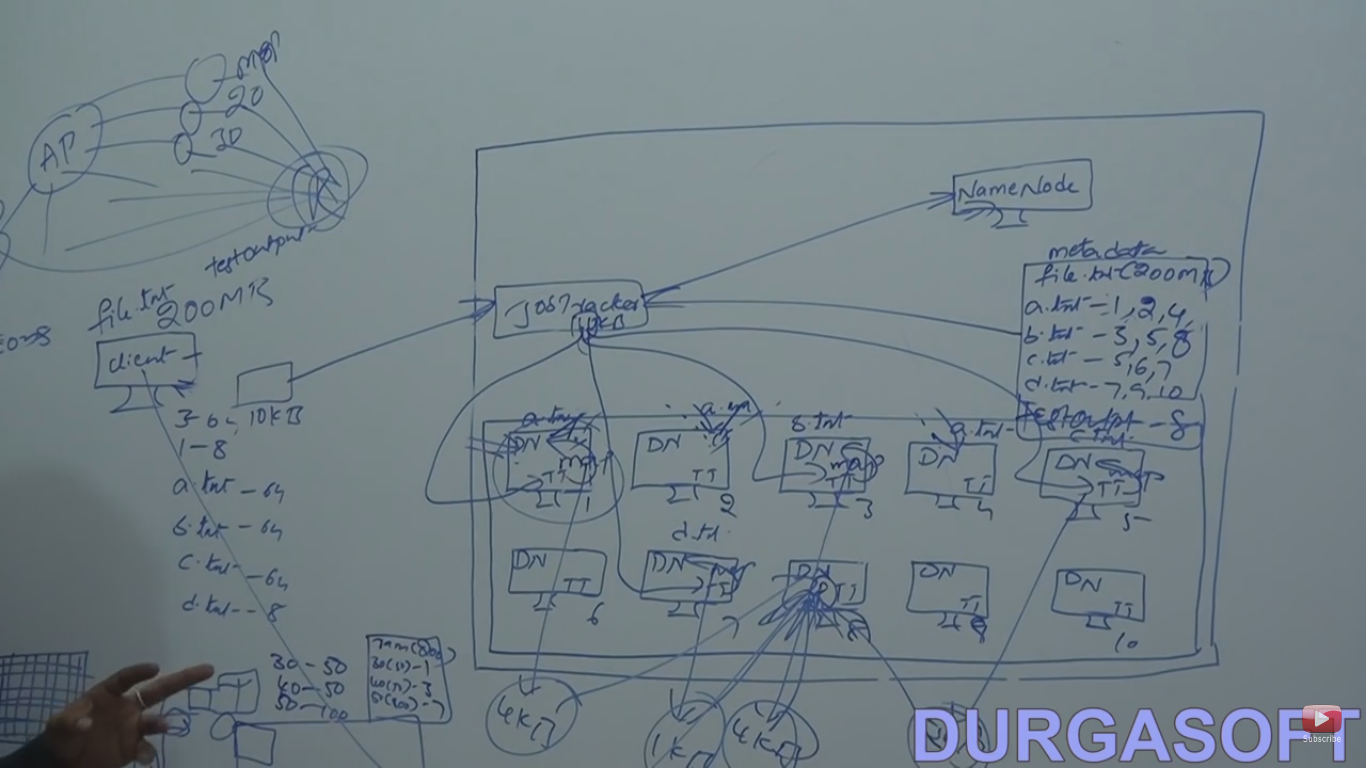 map
20
30
AP
testoutput
file.txt
200MB
client
10KB
3-64,
1-8
a.txt - 64
b.txt - 64
c.txt - 64
d.txt - 8
30-50
40-50
50-100
JobTracker
10KB
NameNode
metadata
file.txt (200MB)
a.txt - 1, 2, 4,
b.txt - 3, 5, 8
c.txt - 5, 6, 7
d.txt - 7, 9, 10
Testoutput - 8
a.txt
DN
map
TT
1
DN
TT
2
b.txt
DN
map
TT
3
a.txt
DN
TT
4
c.txt
DN
map
TT
5
DN
TT
6
d.txt
DN
TT
7
DN
TT
8
DN
TT
9
DN
TT
10
4KB
1KB
4KB
DURGASOFT
Subscribe